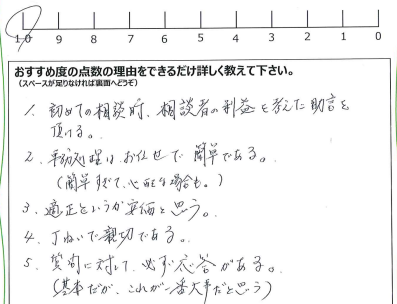 10 9 8 7 6 5 4 3 2 1 0
おすすめ度の点数の理由をできるだけ詳しく教えて下さい。
(スペースが足りなければ裏面へどうぞ)
1. 初めての相談時、相談者の利益を考えた助言を
頂ける。
2. 手続処理はお任せで簡単である。
(簡単すぎて、心配な場合も。)
3. 適正というか安価と思う。
4. 丁ねいで親切である。
5. 質問に対して、必ず応答がある。
(基本だが、これが一番大事だと思う)